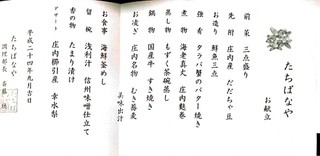 たちばなや
お献立
前菜 三点盛り
先附 庄内産 だだちゃ豆
お造り 鮮魚三点
強肴 タラバ蟹のバター焼き
煮物 海老真丈 庄内麩巻
蒸し物 もずく茶碗蒸し
鍋物 国産牛 すき焼き
お凌ぎ 庄内名物 むき蕎麦
美味出汁
お食事 海鮮釜めし
留椀 浅利汁 信州味噌仕立て
香の物 たまり漬け
デザート 庄内櫛引産 幸水梨
平成二十四年九月吉日
たちばなや
調理部長